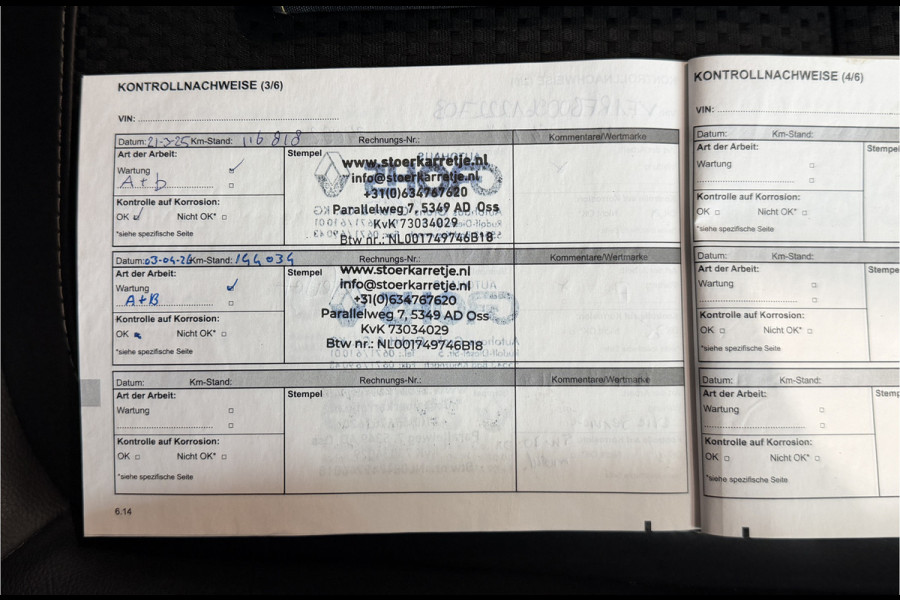 KONTROLLNACHWEISE (3/6)
VIN:
Datum: 21-3-25 Km-Stand: 116 818 Rechnungs-Nr.: Kommentare/Wertmarke
Art der Arbeit: Stempel
Wartung
A + b
Kontrolle auf Korrosion:
OK Nicht OK*
*siehe spezifische Seite
www.stoerkarretje.nl
info@stoerkarretje.nl
+31(0)634767620
Parallelweg 7, 5349 AD Oss
KvK 73034029
Btw nr.: NL001749746B18
Datum: 03-04-26 Km-Stand: 144034 Rechnungs-Nr.: Kommentare/Wertmarke
Art der Arbeit: Stempel
Wartung
A+B
Kontrolle auf Korrosion:
OK Nicht OK*
*siehe spezifische Seite
www.stoerkarretje.nl
info@stoerkarretje.nl
+31(0)634767620
Parallelweg 7, 5349 AD Oss
KvK 73034029
Btw nr.: NL001749746B18
Datum: Km-Stand: Rechnungs-Nr.: Kommentare/Wertmarke
Art der Arbeit: Stempel
Wartung
Kontrolle auf Korrosion:
OK Nicht OK*
*siehe spezifische Seite
6.14
KONTROLLNACHWEISE (4/6)
VIN:
Datum: Km-Stand:
Art der Arbeit: Stempel
Wartung
Kontrolle auf Korrosion:
OK Nicht OK*
*siehe spezifische Seite
Datum: Km-Stand:
Art der Arbeit: Stempe
Wartung
Kontrolle auf Korrosion:
OK Nicht OK*
*siehe spezifische Seite
Datum: Km-Stand:
Art der Arbeit: Stemp
Wartung
Kontrolle auf Korrosion:
OK Nicht OK*
*siehe spezifische Seite